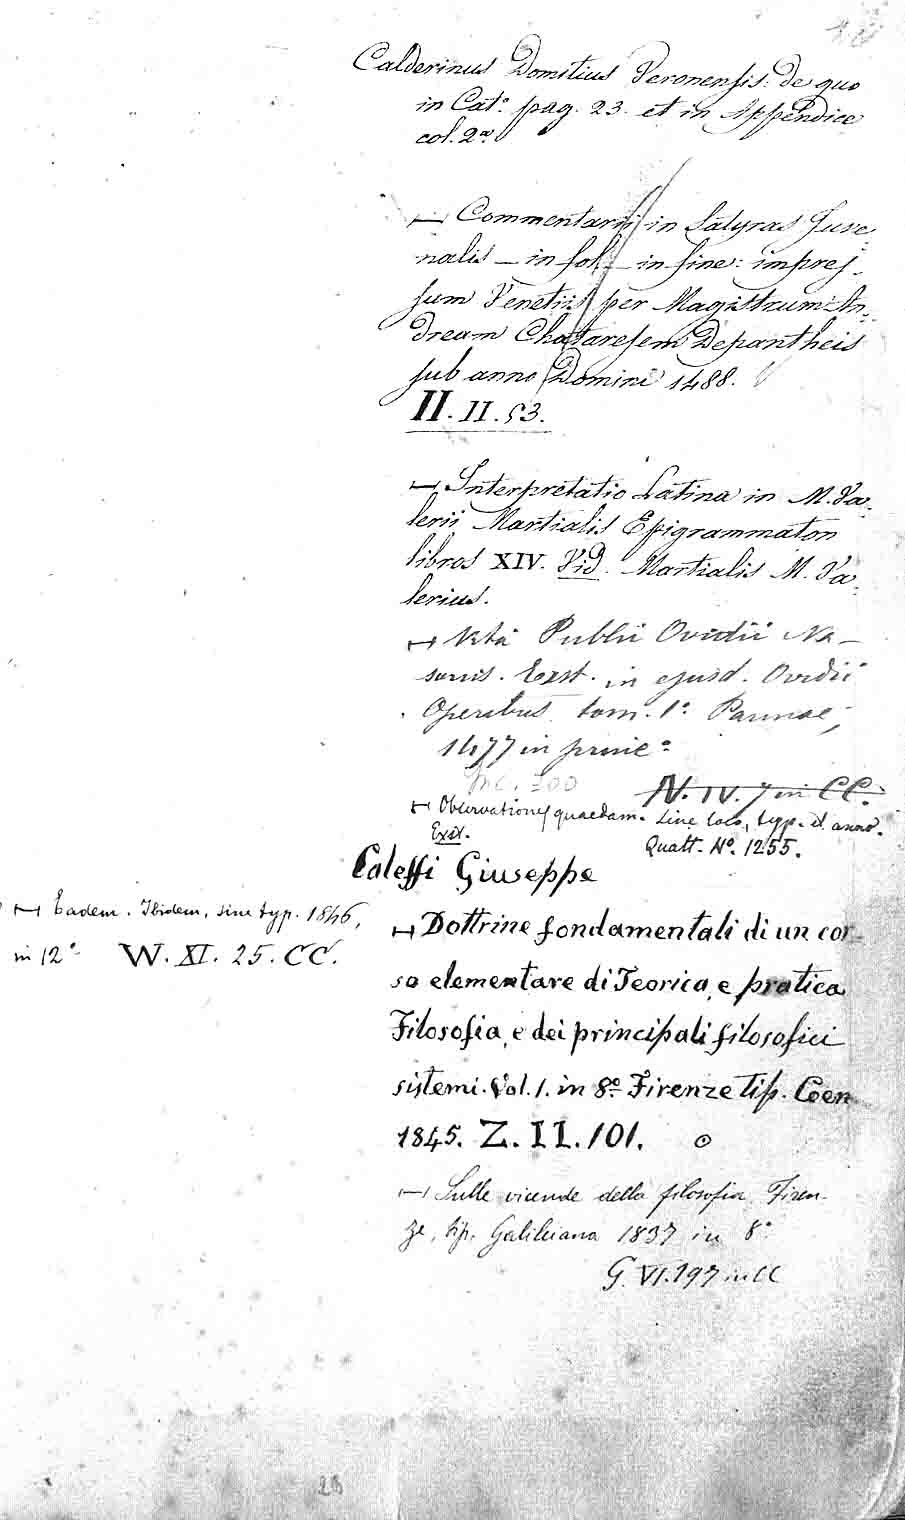 Calderinus Domitius Veronensis: de quo
in Cat.° pag. 23. et in Appendice
col. 2.a
⊢⊣ Commentarii in Satyras Juve-
nalis – in fol. – in fine: impres-
sum Venetiis per Magistrum An-
dream Chataresem Depantheis
sub anno Domini 1488.
II. II. 53.
⊢⊣ Interpretatio Latina in M. Va-
lerii Martialis Epigrammaton
libros XIV. Vid. Martialis M. Va-
lerius.
⊢⊣ Vita Publii Ovidii Na-
sonis. Exst. in ejusd. Ovidii
Operibus tom. 1.° Parmae,
1477 in princ.°
N. IV. 7 in CC.
⊢⊣ Observationes quaedam. Sine loco, typ. et anno.
Exst. Quatt. N.° 1255.
Caleffi Giuseppe
⊢⊣ Eadem. Ibidem, sine typ. 1846,
in 12.° W. XI. 25. CC.
⊢⊣ Dottrine fondamentali di un cor-
so elementare di Teorica, e pratica
Filosofia, e dei principali filosofici
sistemi. Vol. 1. in 8.° Firenze tip. Coen
1845. Z. II. 101. ⊙
⊢⊣ Sulle vicende della filosofia Firen-
ze, tip. Galileiana 1837 in 8.°
G. VI. 197 in CC
28